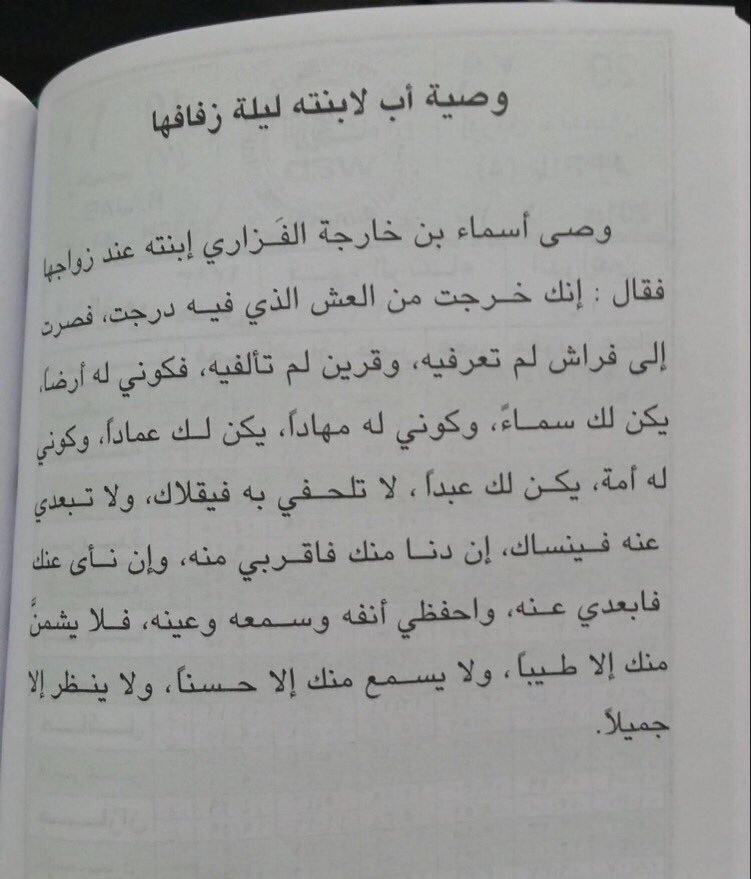 وصية أب لابنته ليلة زفافها
وصى أسماء بن خارجة الفَزاري إبنته عند زواجها
فقال : إنك خرجت من العش الذي فيه درجت، فصرت
إلى فراش لم تعرفيه، وقرين لم تألفيه، فكوني له أرضاً،
يكن لك سماءً، وكوني له مهاداً، يكن لك عماداً، وكوني
له أمة، يكن لك عبداً، لا تلحفي به فيقلاك، ولا تبعدي
عنه فينساك، إن دنا منك فاقربي منه، وإن نأى عنك
فابعدي عنه، واحفظي أنفه وسمعه وعينه، فلا يشمنَّ
منك إلا طيباً، ولا يسمع منك إلا حسناً، ولا ينظر إلا
جميلاً.